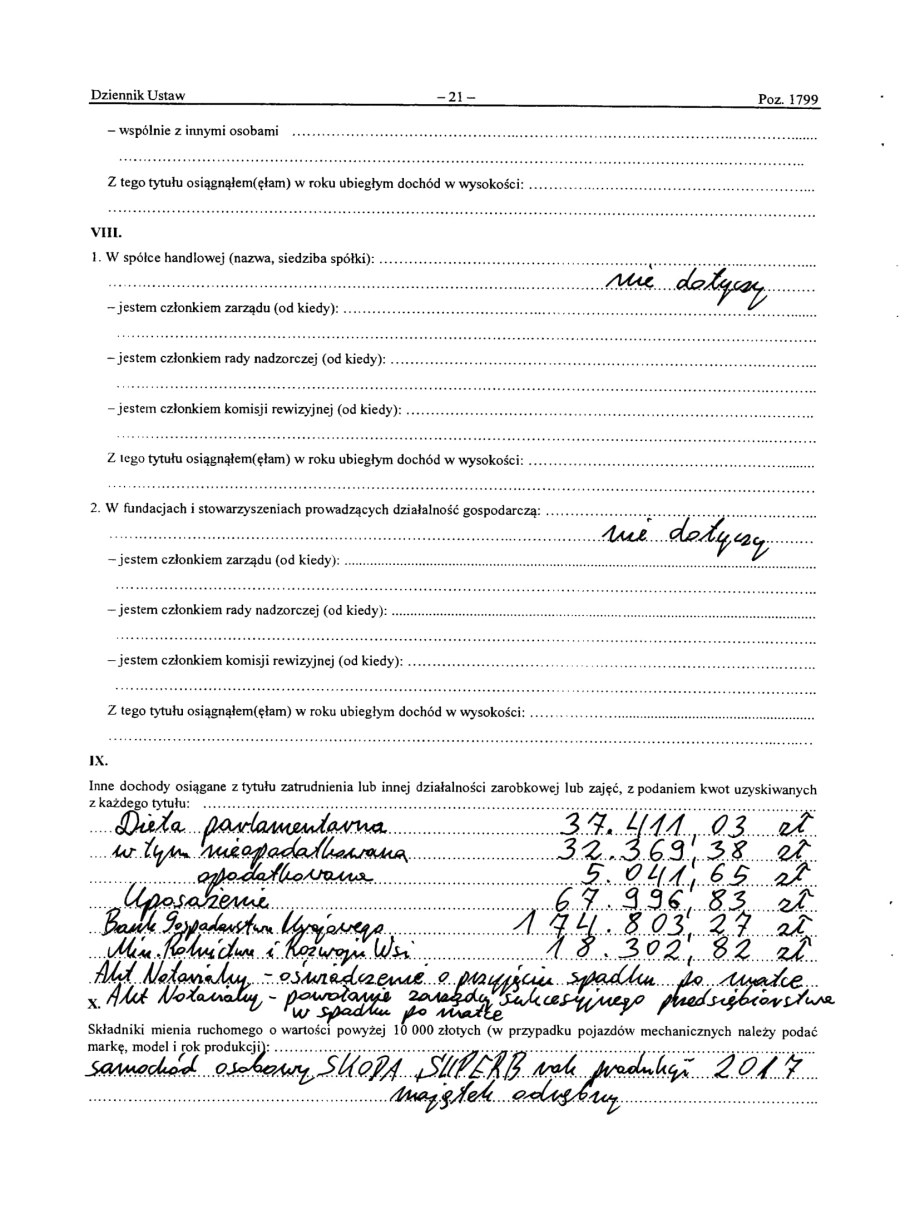 Dziennik Ustaw – 21 – Poz. 1799
– wspólnie z innymi osobami
Z tego tytułu osiągnąłem(ęłam) w roku ubiegłym dochód w wysokości:
VIII.
1. W spółce handlowej (nazwa, siedziba spółki):
nie dotyczy
– jestem członkiem zarządu (od kiedy):
– jestem członkiem rady nadzorczej (od kiedy):
– jestem członkiem komisji rewizyjnej (od kiedy):
Z tego tytułu osiągnąłem(ęłam) w roku ubiegłym dochód w wysokości:
2. W fundacjach i stowarzyszeniach prowadzących działalność gospodarczą:
nie dotyczy
– jestem członkiem zarządu (od kiedy):
– jestem członkiem rady nadzorczej (od kiedy):
– jestem członkiem komisji rewizyjnej (od kiedy):
Z tego tytułu osiągnąłem(ęłam) w roku ubiegłym dochód w wysokości:
IX.
Inne dochody osiągane z tytułu zatrudnienia lub innej działalności zarobkowej lub zajęć, z podaniem kwot uzyskiwanych
z każdego tytułu:
Dieta parlamentarna 37.411,03 zł
w tym nieopodatkowana 32.369,38 zł
opodatkowana 5.041,65 zł
Uposażenie 67.996,83 zł
Bank Gospodarstwa Krajowego 174.803,27 zł
Min. Rolnictwa i Rozwoju Wsi 18.302,82 zł
Akt Notarialny - oświadczenie o przyjęciu spadku po matce
X. Akt Notarialny - powołanie zarządu sukcesyjnego przedsiębiorstwa
w spadku po matce
Składniki mienia ruchomego o wartości powyżej 10 000 złotych (w przypadku pojazdów mechanicznych należy podać
markę, model i rok produkcji):
samochód osobowy SKODA SUPERB rok produkcji 2017
majątek odrębny